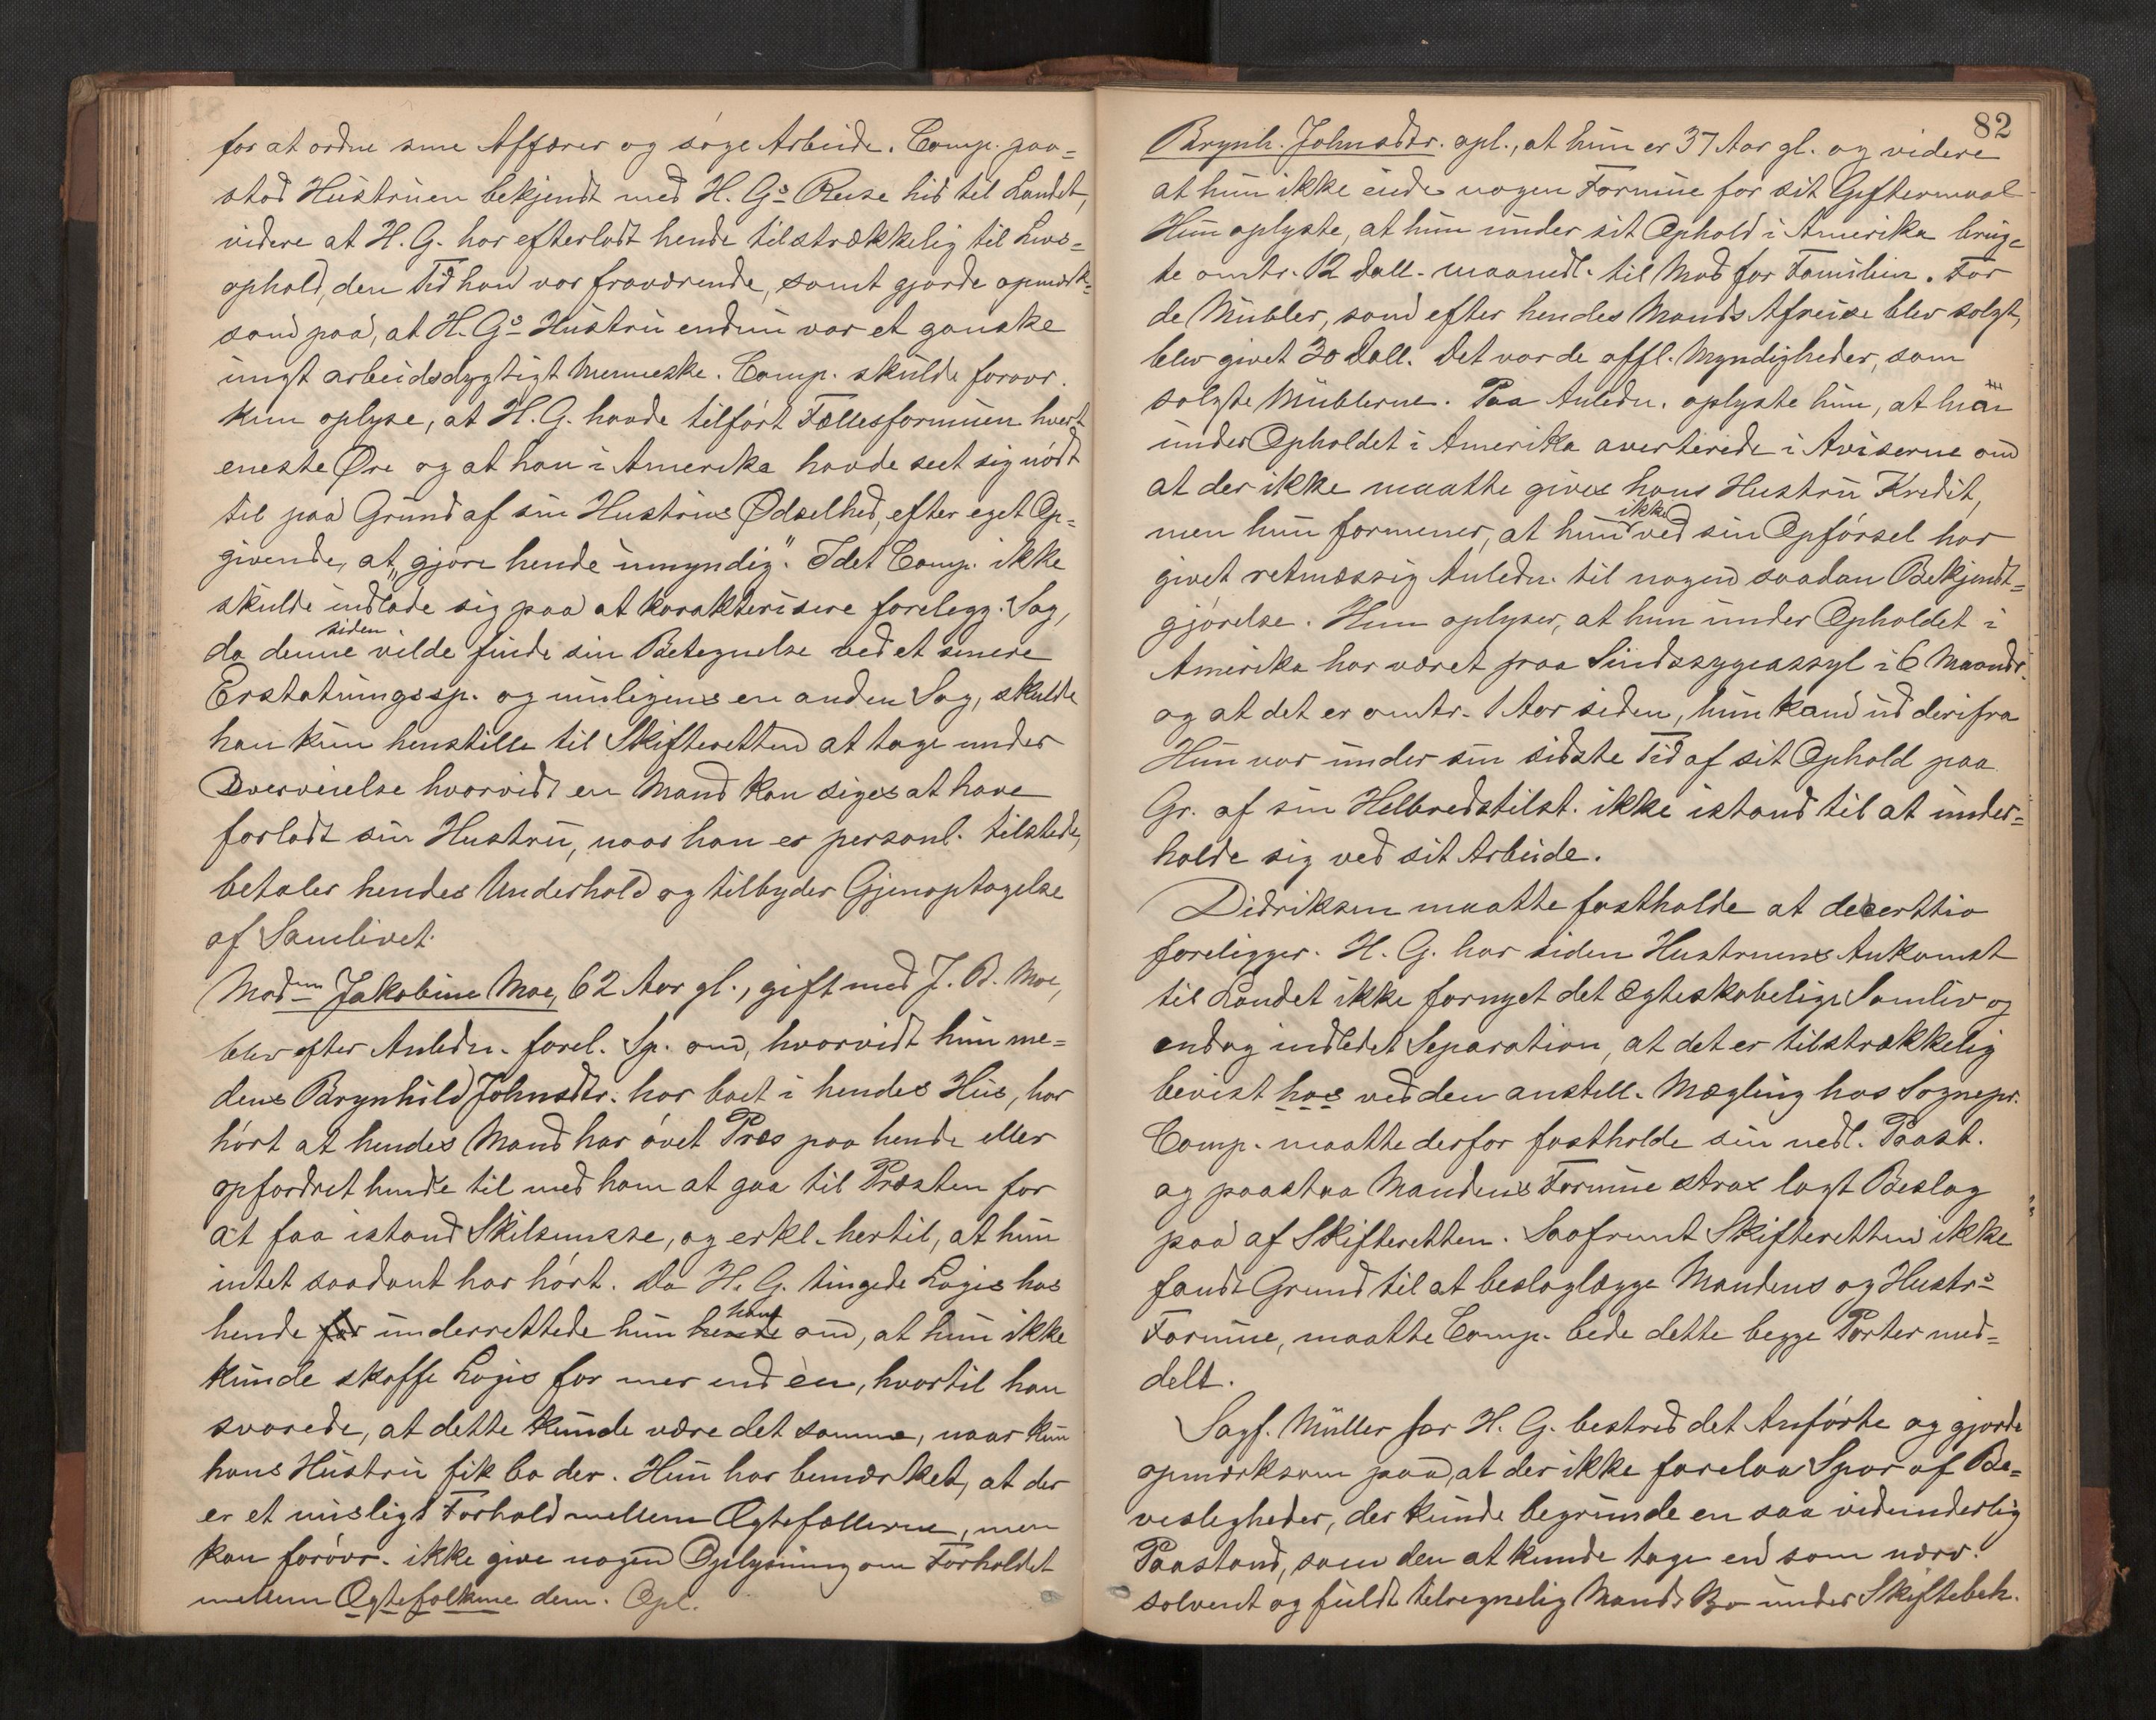 for at ordne sine Affærer og søge Arbeide. Comp. paa=
stod Hustruen bekjendt med H. G.s Reise hid til Landet,
videre at H. G. har efterladt hende tilstrækkelig til Livs=
ophold, den Tid han var fraværende, samt gjorde opmærk=
som paa, at H. G.s Hustru endnu var et ganske
ungt arbeidsdygtigt Menneske. Comp. skulde forøvr.
kun oplyse, at H. G. havde tilført Fællesformuen hvert
eneste Øre og at han i Amerika havde seet sig nødt
til paa Grund af sin Hustrus Ødselhed, efter eget Op=
givende, at „gjøre hende umyndig". Idet Comp. ikke
skulde indlade sig paa at karakterisere forelegg. Sag,
da denne siden vilde finde sin Betegnelse ved et senere
Erstatningssp. og muligens en anden Sag, skulde
han kun henstille til Skifteretten at tage under
Overveielse hvorvidt en Mand kan siges at have
forladt sin Hustru, naar han er personl. tilstede,
betaler hendes Underhold og tilbyder Gjenoptagelse
af Samlivet.
Madm Jakobine Moe, 62 Aar gl., gift med J. B. Moe,
blev efter Anledn. forel. Sp. om, hvorvidt hun me=
dens Brynhild Johnsdtr. har boet i hendes Hus, har
hørt at hendes Mand har øvet Præs paa hende eller
opfordret hende til med ham at gaa til Præsten for
at faa istand Skilsmisse, og erkl. hertil, at hun
intet saadant har hørt. Da H. G. tingede Logis hos
hende for underrettede hun hende ham om, at hun ikke
kunde skaffe Logis for mer end èn, hvortil han
svarede, at dette kunde være det samme, naar kun
hans Hustru fik bo der. Hun har bemærket, at der
er et misligt Forhold mellem Ægtefællerne, men
kan forøvr. ikke give nogen Oplysning om Forholdet
mellem Ægtefolkene dem. Opl.
82
Brynh. Johnsdtr. opl., at hun er 37 Aar gl. og videre
at hun ikke eiede nogen Formue før sit Giftermaal
Hun oplyste, at hun under sit Ophold i Amerika brug=
te omtr. 12 Doll. maanedl. til Mad for Familien. For
de Møbler, som efter hendes Mands Afreise blev solgt,
blev givet 30 Doll. Det var de offl. Myndigheder, som
solgte Møblerne. Paa Anledn. oplyste hun, at han
under Opholdet i Amerika averterede i Aviserne om
at der ikke maatte gives hans Hustru Kredit,
men hun formener, at hun ikke ved sin Opførsel har
givet retmæssig Anledn. til nogen saadan Bekjendt=
gjørelse. Hun oplyser, at hun under Opholdet i
Amerika har været paa Sindssygeassyl i 6 Maaneder
og at det er omtr. 1 Aar siden, hun kom ud derifra
Hun var under sin sidste Tid af sit Ophold paa
Gr. af sin Helbredstilst. ikke istand til at under=
holde sig ved sit Arbeide.
Didriksen maatte fastholde at deserttio
foreligger. H. G. har siden Hustruens Ankomst
til Landet ikke fornyet det ægteskabelige Samliv og
endog indledet Separation, at det er tilstrækkelig
bevist hos ved den anstill. Mægling hos Sognepr.
Comp. maatte derfor fastholde sin nedl. Paast.
og paastaa Mandens Formue strax lagt Beslag
paa af Skifteretten. Saafremt Skifteretten ikke
fandt Grund til at beslaglægge Mandens og Hustr.s
Formue, maatte Comp. bede dette begge Parter med=
delt.
Sagf. Müller for H. G. bestred det Anførte og gjorde
opmærksom paa, at der ikke forelaa Spor af Be=
vesligheder, der kunde begrunde en saa vidunderlig
Paastand, som den at kunde tage en som nærv.
solvent og fuldt tilregnelig Mands Bo under Skiftebeh.